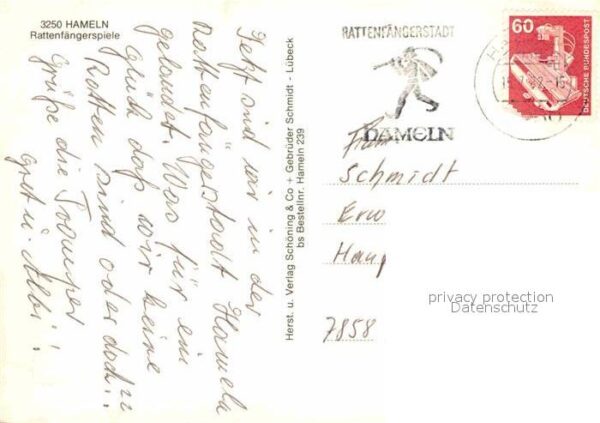 3250 HAMELN
Rattenfängerspiele
Jetzt sind wir in der
Rattenfängerstadt Hameln
gelandet. Was für ein
Glück daß wir keine
Ratten sind oder doch??
Grüße die Tramper
Gret u. !
Herst. u. Verlag Schöning & Co + Gebrüder Schmidt - Lübeck
bs Bestellnr. Hameln 239
RATTENFÄNGERSTADT
HAMELN
60
DEUTSCHE BUNDESPOST
Schmidt
Erw
Haup
7858
privacy protection
Datenschutz